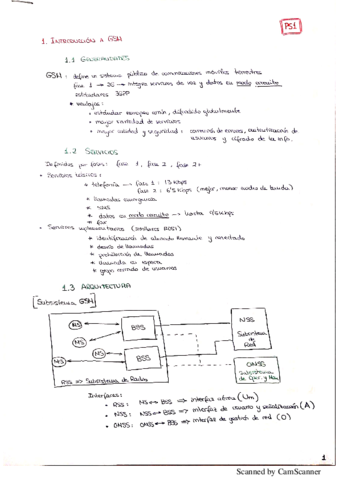 PS1
1. INTRODUCCIÓN A GSM
1.1 GENERALIDADES
GSM: define un sistema público de comunicaciones móviles terrestres
fase 1 → 2G → integra servicios de voz y datos en modo circuito
estándares 3GPP
* ventajas:
• estándar europeo común, difundido globalmente
• mayor cantidad de servicios
• mayor calidad y seguridad: corrección de errores, autenticación de
usuarios y cifrado de la info.
1.2 SERVICIOS
Definidos por fases: fase 1, fase 2, fase 2+
• Servicios básicos:
* telefonía → fase 1: 13 Kbps
fase 2: 6'5 Kbps (mejor, menor ancho de banda)
* llamadas emergencia
* SMS
* datos en modo circuito → hasta 9'6 Kbps
* fax
• Servicios suplementarios (similares RDSI)
* identificación de abonado llamante y conectado
* desvío de llamadas
* prohibición de llamadas
* llamada en espera
* grupo cerrado de usuarios
1.3 ARQUITECTURA
Subsistema GSM
MS
BSS
MS
MS
MS
BSS
RSS => Subsistema de Radio
NSS
Subsistema
de
Red
OMSS
Subsistema
de Oper. y Man.
Interfaces:
• RSS: MS ↔ BSS => interfaz aérea (Um)
• NSS: NSS ↔ BSS => interfaz de usuario y señalización (A)
• OMSS: OMSS ↔ BSS => interfaz de gestión de red (O)
1
Scanned by CamScanner